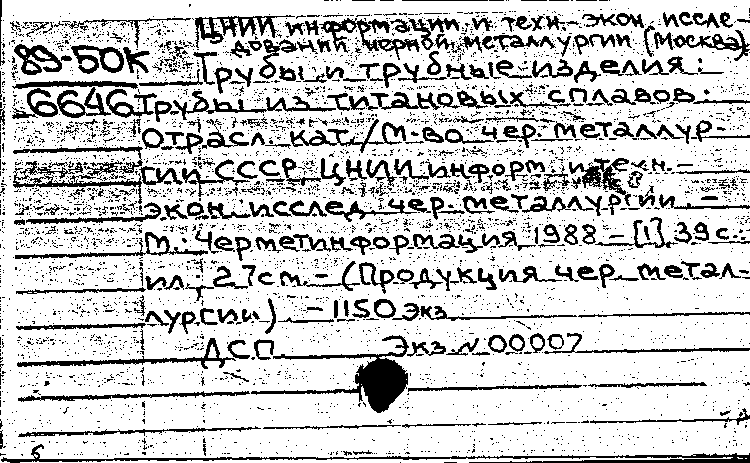 ЦНИИ информации и техн.-экон. иссле-
дований черной металлургии (Москва).
89-50К
Трубы и трубные изделия:
6646
Трубы из титановых сплавов:
Отрасл. кат./М-во чер. металлур-
гии СССР, ЦНИИ информ. и техн.-
экон. исслед. чер. металлургии. -
М.: Черметинформация, 1988 - [1], 39 с.:
ил.; 27см. - (Продукция чер. метал-
лургии). - 1150 экз.
ДСП Экз. N 00007
6